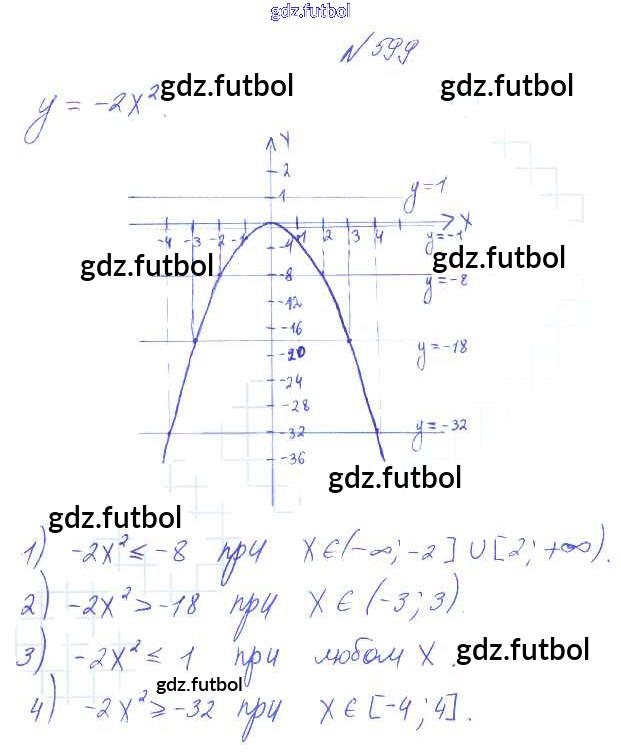 gdz.futbol
N 599
y = -2x² gdz.futbol gdz.futbol
Y
2
1
y=1
X
-4 -3 -2 -1 1 2 3 4
y=-1
-4
gdz.futbol gdz.futbol
-8
y=-8
-12
-16
y=-18
-20
-24
-28
y=-32
-32
-36
gdz.futbol
gdz.futbol
1) -2x² ≤ -8 при x∈(-∞; -2] ∪ [2; +∞).
2) -2x² > -18 при x∈(-3; 3).
3) -2x² ≤ 1 при любом x. gdz.futbol
gdz.futbol
4) -2x² ≥ -32 при x∈[-4; 4].